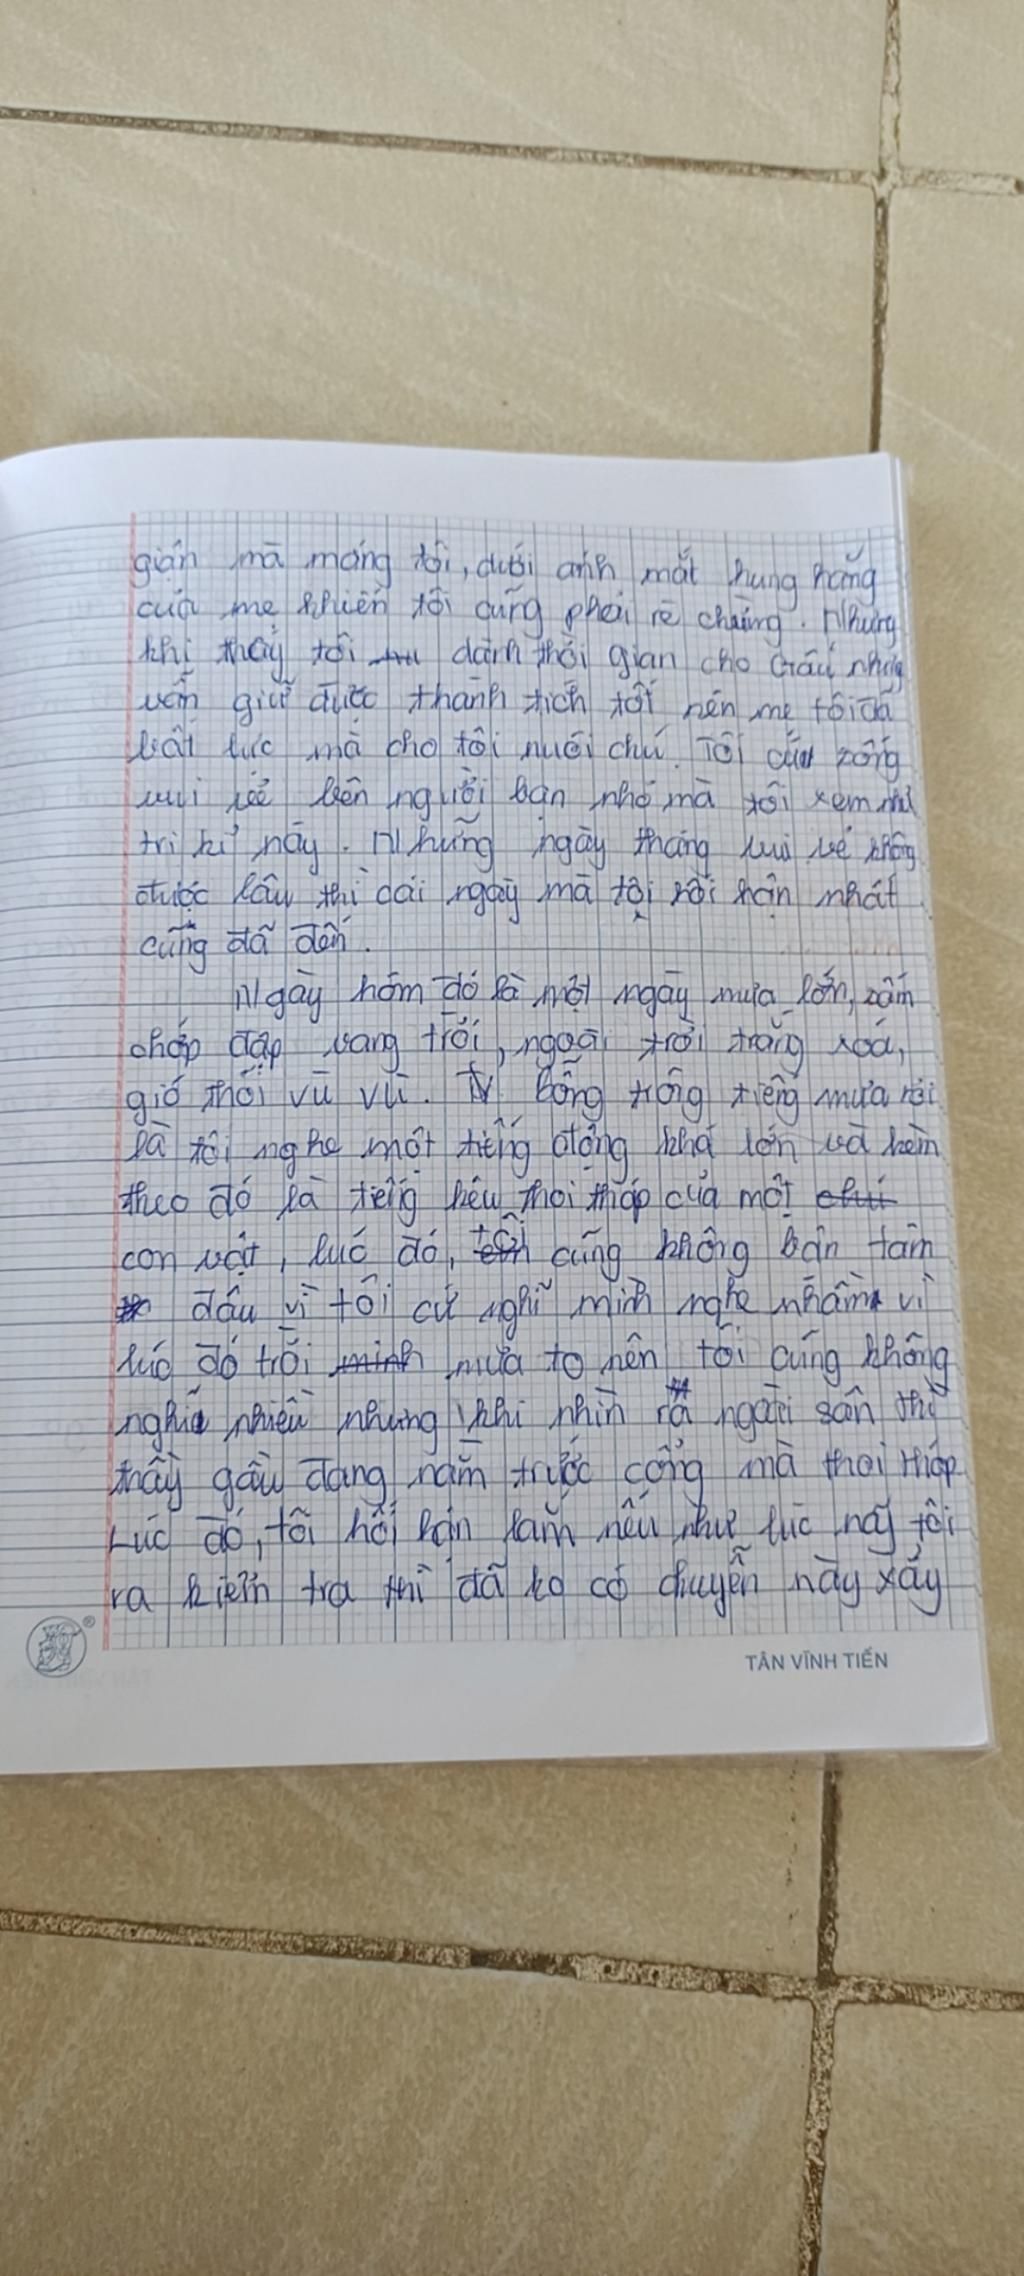 giận mà mắng tôi, dưới ánh mắt hung hăng
của mẹ khiến tôi cũng phải rè chừng. Nhưng
khi thấy tôi dành thời gian cho Gấu nhưng
vẫn giữ được thành tích tốt nên mẹ tôi đã
bất lực mà cho tôi nuôi chú. Tôi cứ sống
vui vẻ bên người bạn nhỏ mà tôi xem như
tri kỉ này. Những ngày tháng vui vẻ không
được lâu thì cái ngày mà tôi hối hận nhất
cũng đã đến.
Ngày hôm đó là một ngày mưa lớn, sấm
chớp đập vang trời, ngoài trời trắng xoá,
gió thổi vù vù. Bỗng trong tiếng mưa rơi
là tôi nghe một tiếng động khá lớn và kèm
theo đó là tiếng kêu thoi thóp của một
con vật, lúc đó, tôi cũng không bận tâm
đâu vì tôi cứ nghĩ mình nghe nhầm vì
lúc đó trời mưa to nên tôi cũng không
nghĩ nhiều nhưng khi nhìn ra ngoài sân thì
thấy gấu đang nằm trước cổng mà thoi thóp
Lúc đó, tôi hối hận lắm nếu như lúc nãy tôi
ra kiểm tra thì đã ko có chuyện này xảy
TÂN VĨNH TIẾN